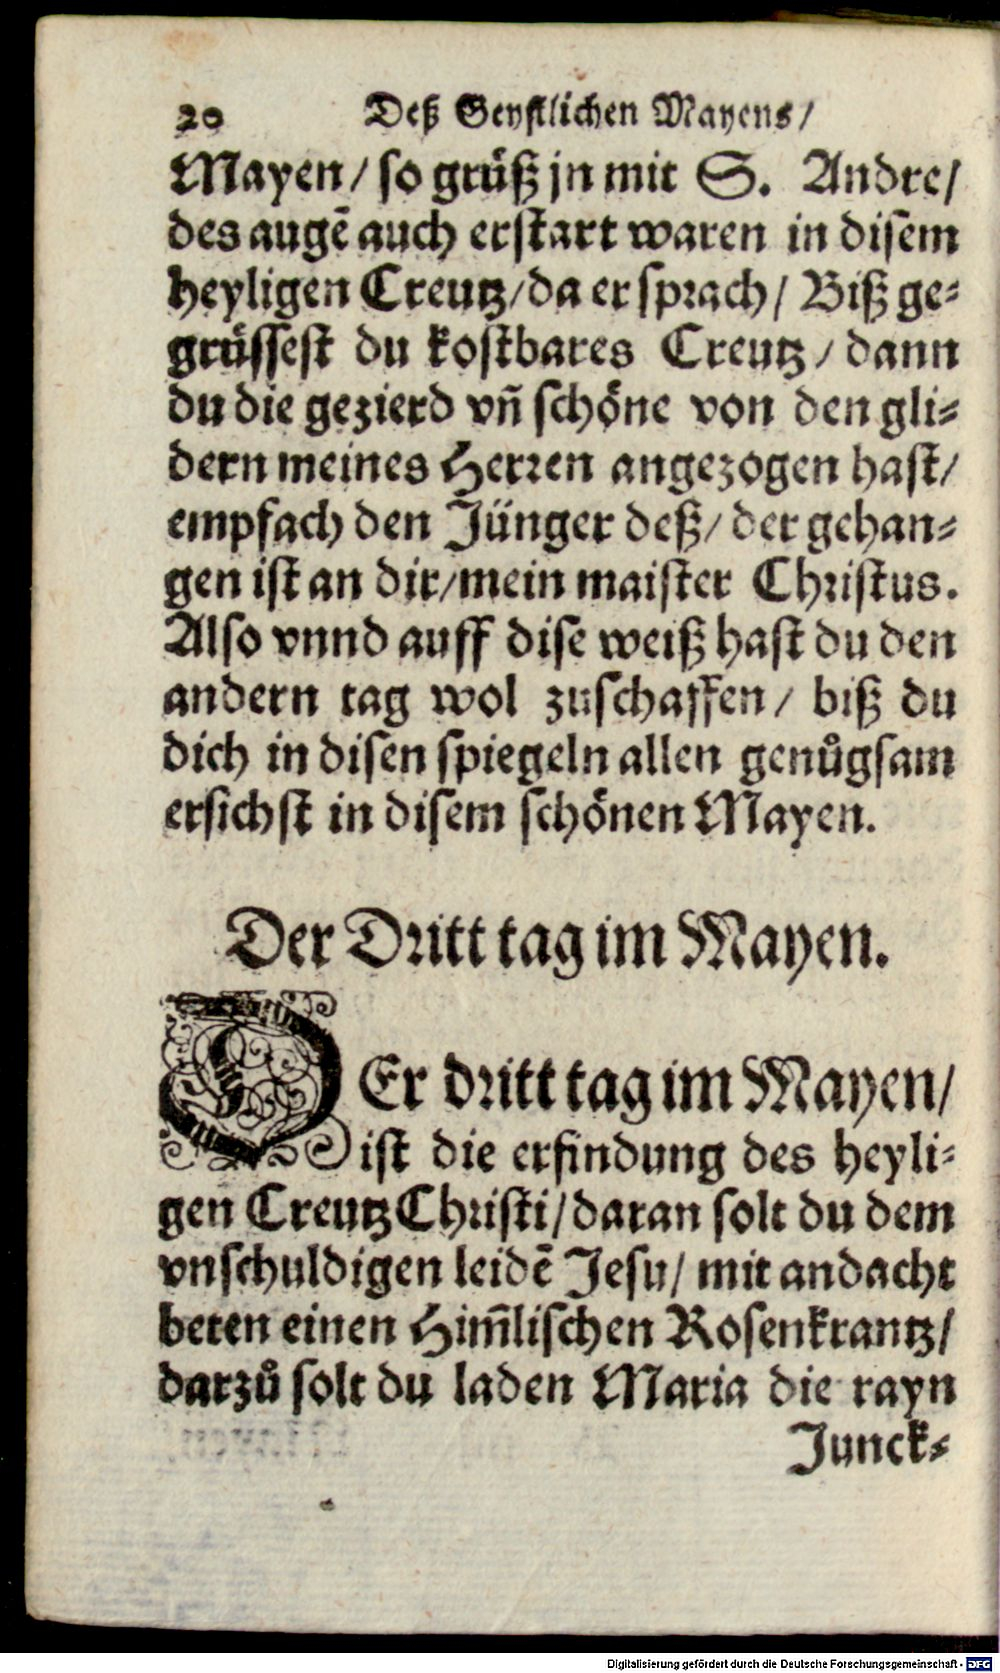 20 Deß Geystlichen Mayens/
Mayen/ so grüß jn mit S. Andre/
des augē auch erstart waren in disem
heyligen Creutz/ da er sprach/ Biß ge-
grüssest du kostbares Creutz/ dann
du die gezierd vñ schöne von den gli-
dern meines Herren angezogen hast/
empfach den Jünger deß/ der gehan-
gen ist an dir/ mein maister Christus.
Also vnnd auff dise weiß hast du den
andern tag wol zuschaffen/ biß du
dich in disen spiegeln allen genůgsam
ersichst in disem schönen Mayen.
Der Dritt tag im Mayen.
DEr dritt tag im Mayen/
ist die erfindung des heyli-
gen Creutz Christi/ daran solt du dem
vnschuldigen leidē Jesu/ mit andacht
beten einen Him̄lischen Rosenkrantz/
darzů solt du laden Maria die rayn
Junck-
Digitalisierung gefördert durch die Deutsche Forschungsgemeinschaft - DFG